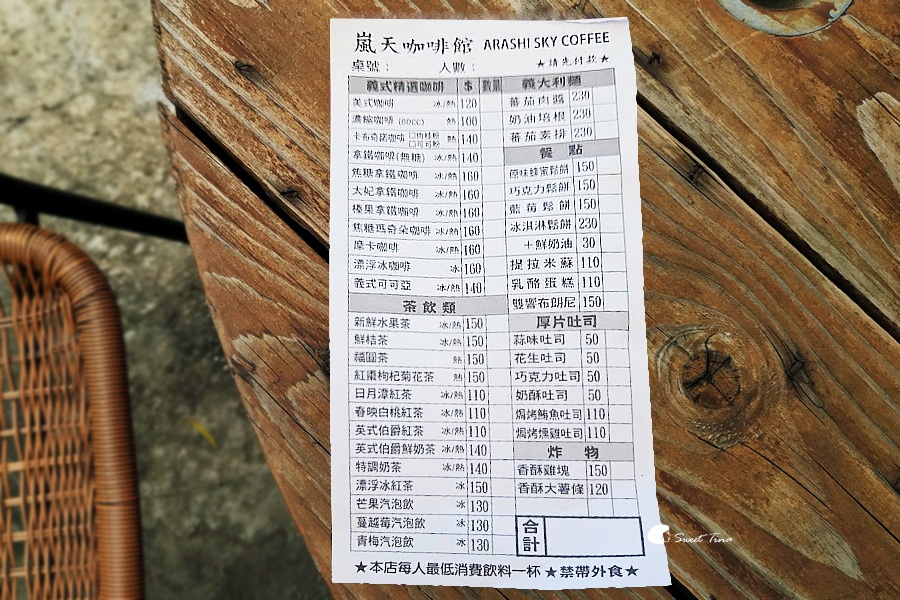 嵐天咖啡館 ARASHI SKY COFFEE
桌號： 人數： ★請先付款★
義式精選咖啡 $ 數量
美式咖啡 冰/熱 120
濃縮咖啡 (60CC) 熱 100
卡布奇諾咖啡 □肉桂粉 □可可粉 熱 140
拿鐵咖啡(無糖) 冰/熱 140
焦糖拿鐵咖啡 冰/熱 160
太妃拿鐵咖啡 冰/熱 160
榛果拿鐵咖啡 冰/熱 160
焦糖瑪奇朵咖啡 冰/熱 160
摩卡咖啡 冰/熱 160
漂浮冰咖啡 冰 160
義式可可亞 冰/熱 140
茶飲類
新鮮水果茶 冰/熱 150
鮮桔茶 冰/熱 150
福圓茶 熱 150
紅棗枸杞菊花茶 熱 150
日月潭紅茶 冰/熱 110
春映白桃紅茶 冰/熱 110
英式伯爵紅茶 冰/熱 110
英式伯爵鮮奶茶 冰/熱 140
特調奶茶 冰/熱 140
漂浮冰紅茶 冰 150
芒果汽泡飲 冰 130
蔓越莓汽泡飲 冰 130
青梅汽泡飲 冰 130
義大利麵
蕃茄肉醬 230
奶油培根 230
蕃茄素排 230
餐點
原味蜂蜜鬆餅 150
巧克力鬆餅 150
藍莓鬆餅 150
冰淇淋鬆餅 230
＋鮮奶油 30
提拉米蘇 110
乳酪蛋糕 110
雙響布朗尼 150
厚片吐司
蒜味吐司 50
花生吐司 50
巧克力吐司 50
奶酥吐司 50
焗烤鮪魚吐司 110
焗烤燻雞吐司 110
炸物
香酥雞塊 150
香酥大薯條 120
合計
★本店每人最低消費飲料一杯★禁帶外食★
Sweet Tina